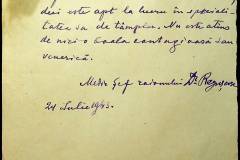 deci este apt la lucru în speciali
tatea sa de tâmplar. Nu este atins
de nici o boala contagioasă sau
venerică.
Medic șef raionului Dr
24 Iulie 1943.